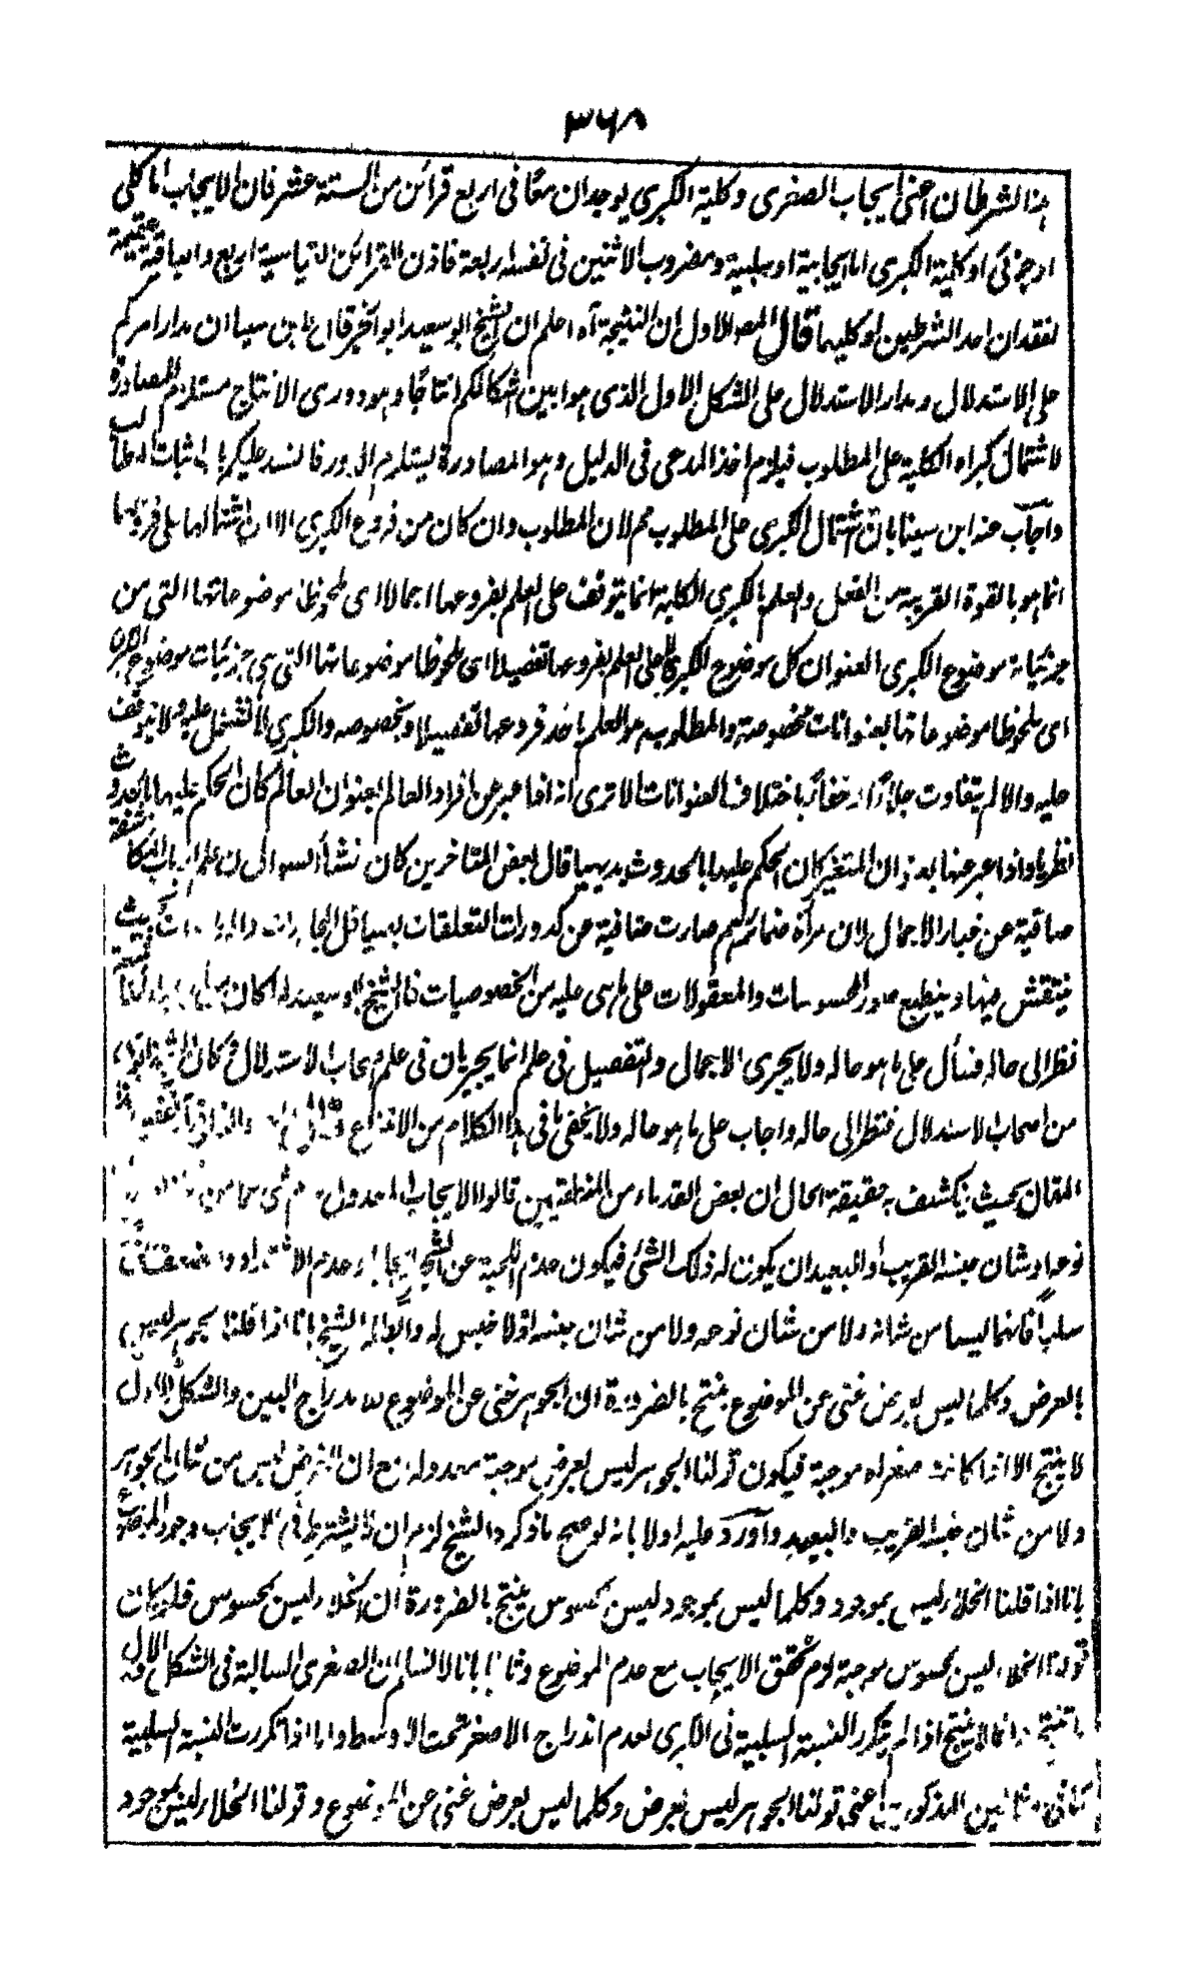 ٣٦٨
هذا الشرطان اعنى ايجاب الصغرى وكلية الكبرى يوجدان معًا فى اربع قرائن من الستة عشر فان الايجاب اما كلى
اوجزئى او كلية الكبرى اما ايجابية او سلبية ومضروب الاثنين فى نفسه اربعة فاذن القرائن القياسية اربع والباقية عقيمة
لفقدان احد الشرطين او كليهما قال المصـ الاول ان النتيجة آه اعلم ان الشيخ ابو سعيد ابو الخير قال لابن سينا ان مدار امركم
على الاستدلال ومدار الاستدلال على الشكل الاول الذى هو ابين اشكالكم انتاجًا وهو دورى الانتاج مستلزم للمصادرة
لاشتمال كبراه الكلية على المطلوب فيلزم اخذ المدعى فى الدليل وهو المصادرة ليستلزم الدور فانسد عليكم اثبات المطالب
واجاب عنه ابن سينا بان اشتمال الكبرى على المطلوب مم لان المطلوب وان كان من فروع الكبرى الا ان اشتمالها على فروعها
انما هو بالقوة القريبة من الفعل والعلم بالكبرى الكلية انما يتوقف على العلم بفروعها اجمالا اى ملحوظا موضوعاتها التى من
جزئيات موضوع الكبرى العنوان كل موضوع الكبرى لا على العلم بفروعها تفصيلا اى ملحوظا موضوعاتها التى هى جزئيات موضوع الكبرى
اى ملحوظا موضوعاتها بعنوانات مخصوصة والمطلوب هو العلم باحد فروعها تفصيلا وبخصوصه والكبرى لا تشتمل عليه ولا تتوقف
عليه والعلم يتفاوت جلاءً وخفاءً باختلاف العنوانات الا ترى انه اذا عبر عن افراد العالم بعنوان العالم كان الحكم عليها بالحدوث
نظريا واذا عبر عنها بعنوان المتغير كان الحكم عليها بالحدوث بديهيا قال بعض المتاخرين كان نشأ السوال ان علم ارباب المكاشفة
صافية عن غبار الاجمال لان مرآة ضمائرهم صارت صافية عن كدورات التعلقات بصياقل المجاهدات بحيث
ينتقش فيها وينطبع صور المحسوسات والمعقولات على ما هى عليه من الخصوصيات فالشيخ ابو سعيد لما كان
نظر الى حاله فسأل على ما هو حاله ولا يجرى الاجمال والتفصيل فى علم انما يجريان فى علم اصحاب الاستدلال كان الشيخ
من اصحاب الاستدلال فنظر الى حاله واجاب على ما هو حاله ولا يخفى ما فى هذا الكلام من الاقناع
المقال بحيث ينكشف به حقيقة الحال ان بعض القدماء من المنطقيين قالوا الايجاب المعدول
نوعه او شان جنسه القريب او البعيد ان يكون له ذلك الشئ فيكون عدم اللحية عن الشيخ ايجابا وعدم
سلبا فانهما ليسا من شانه ولا من شان نوعه ولا من شان جنسه اولا جنس له وابطله الشيخ بانا اذا قلنا الجوهر ليس
بالعرض وكلما ليس بعرض غنى عن الموضوع ينتج بالضرورة ان الجوهر غنى عن الموضوع للاندراج البين والشكل الاول
لا ينتج الا اذا كانت صغراه موجبة فيكون قولنا الجوهر ليس بعرض موجبة معدولة مع ان العرض ليس من شان الجوهر
ولا من شان جنسه القريب والبعيد واورد عليه اولا بانه لو صح ما ذكره الشيخ لزم ان لا يشترط فى الايجاب وجود الموضوع
بانا اذا قلنا الخلاء ليس بموجود وكلما ليس بموجود ليس بمحسوس ينتج بالضرورة ان الخلاء ليس بمحسوس فلو كان
قولنا الخلاء ليس بمحسوس موجبة لزم تحقق الايجاب مع عدم الموضوع وثانيا بانا لا نسلم ان الصغرى السالبة فى الشكل الاول
لا تنتج لا ينتج اذا لم يتكرر النسبة السلبية فى الكبرى لعدم اندراج الاصغر تحت الاوسط واما اذا تكررت النسبة السلبية
كما فى المثالين المذكورين اعنى قولنا الجوهر ليس بعرض وكلما ليس بعرض غنى عن الموضوع وقولنا الخلاء ليس بموجود